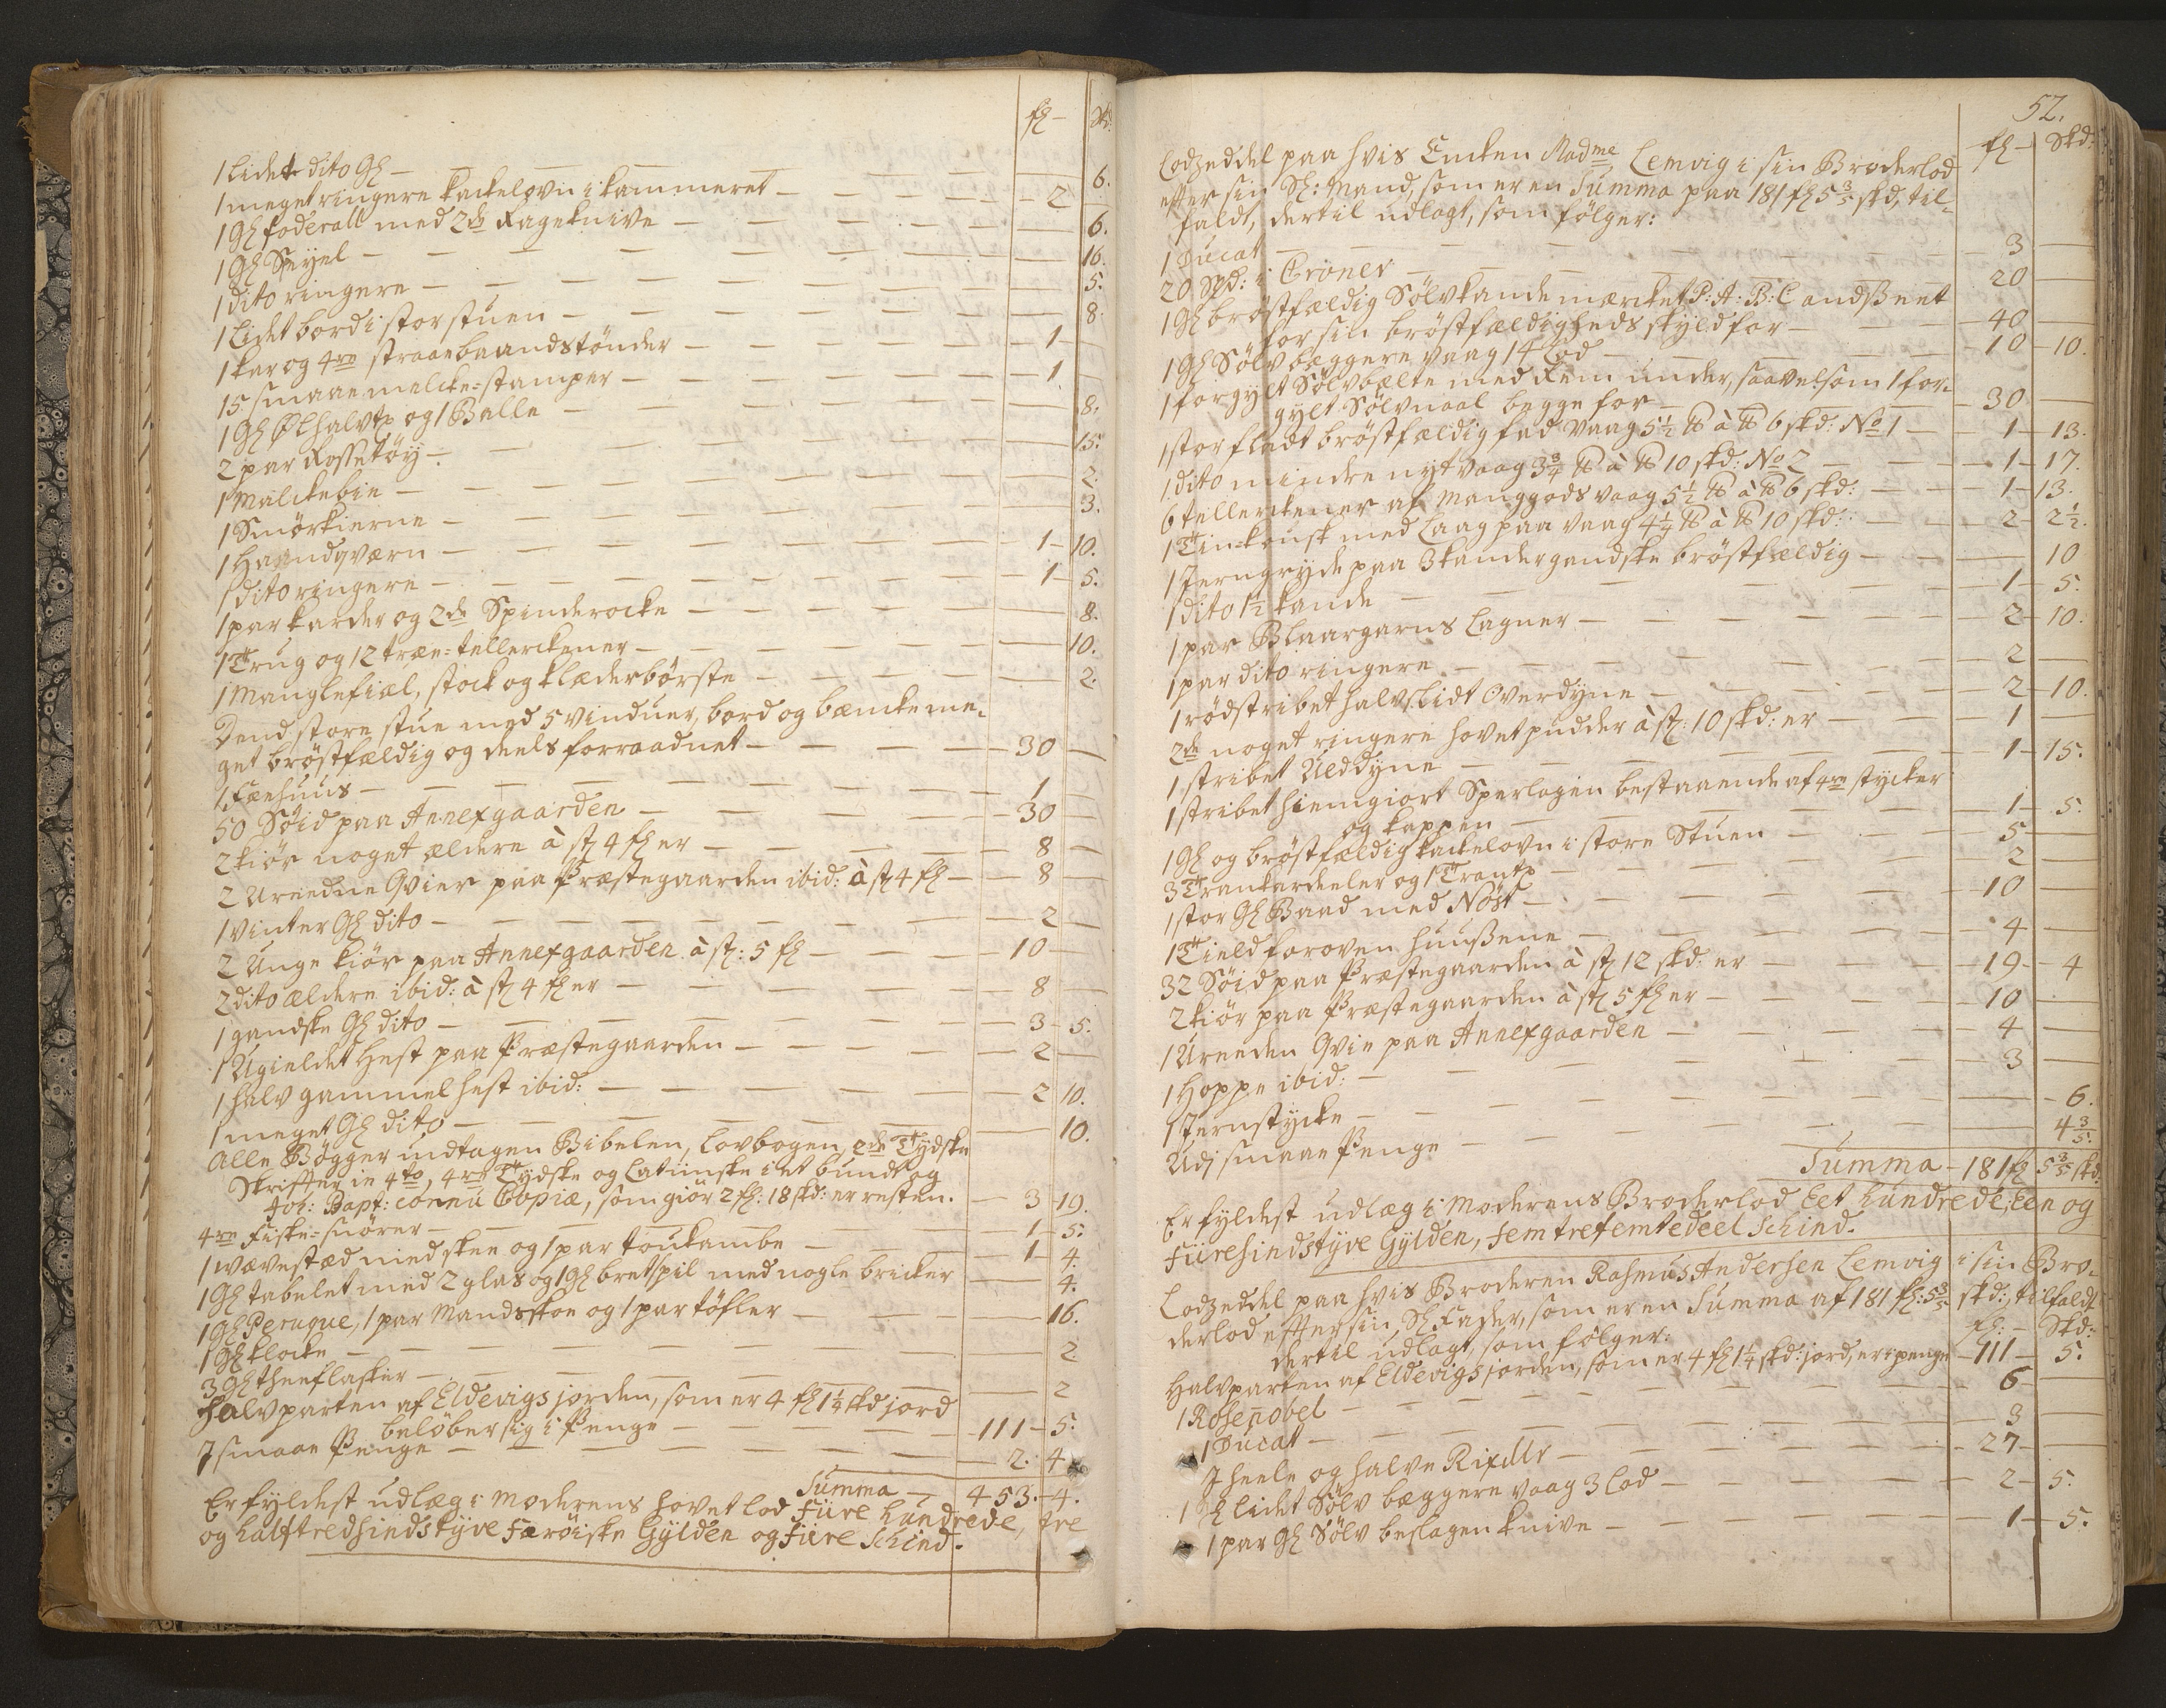 fl – Skd:
1 Lidet dito Gl – 6.
1 meget ringere kackelovn i kammeret – 2
1 Gl foderall med 2de Rageknive – 6.
1 Gl Speyel – 16.
1 dito ringere – 5.
1 Lidet bord i storstuen – 8.
1 kar og 4re straaebaandstönder – 1
15 smaae melcke=stamper – 1.
1 Gl Ølhalvtr og 1 Balle – 8.
2 par Rossetöy – 15.
1 Malckebie – 2.
1 Smörkierne – 3.
1 Haandqværn – 1 – 10.
1 dito ringere – 1 – 5.
1 par karder og 2de Spinderocke – 8.
1 Trug og 12 træe=tellerckener – 10.
1 Manglefiæl, stock og klæderbörste – 2.
Dend store stue med 5 vinduer, bord og bæncke me-
get bröstfældig og deels forraadnet – 30
1 Fæehuus – 1
50 Söid paa Annexgaarden – 30
2 kiör noget ældere à st 4 fl er – 8
2 Ureedne Qvier paa Præstegaarden ibid: à st 4 fl – 8
1 vinter Gl dito – 2
2 Unge kiör paa Annexgaarden à st: 5 fl – 10
2 dito ældere ibid: à st 4 fl er – 8
1 gandske Gl dito – 3 – 5.
1 Ugieldet Hest paa Præstegaarden – 2
1 halv gammel hest ibid: – 2 10.
1 meget Gl dito – 10.
Alle Bøgger undtagen Bibelen, Lovbogen, 2de Tydske
Skriffter in 4to, 4re Tydske og Latiinske i et bundt og
Joh: Bapt: cornu Copiæ, som giör 2 fl: 18 skd: er resten. – 3 19.
4re Fiske=snörer – 1 – 5.
1 wævestæd med skee og 1 par toukambe – 1 – 4.
1 Gl tabelet med 2 glas og 1 Gl bretspil med nogle bricker – 4.
1 Gl Peruque, 1 par Mandsskoe og 1 par töfler – 16.
1 Gl klocke – 2
3 Gl theeflasker – 2
Halvparten af Eldevigs jorden, som er 4 fl 1¼ skd jord
belöber sig i Penge – 111 – 5.
I smaae Penge – 2. 4.
Summa – 453. – 4.
Er fyldest udlæg i Moderens hovet lod Fiire hundrede, tre
og halftredsindstyve Færöiske Gylden og fiire Schind.
52.
fl – Skd:
Lodzeddel paa hvis Encken Madme Lemvig i sin Broderlod
effter sin Sl: Mand, som er en Summa paa 181 fl 5⅗ skd, til-
faldt, dertil udlagt, som fölger:
1 Ducat – 3
20 Spd: i Croner – 20
1 Gl bröstfældig Sölvkande mærcket P: A: B: L andsseet
for sin bröstfældigheds skyld for – 40
1 Gl Sölvbæggere vaag 14 Lod – 10 – 10.
1 forgylt Sölvbælte med Rem under, saavelsom 1 for-
gylt Sölvnaal begge for – 30
1 stor fladt bröstfældig fad vaag 5½ ℔ à ℔ 6 skd: No 1 – 1 – 13.
1 dito mindre nyt vaag 3¾ ℔ à ℔ 10 skd: No 2 – 1 – 17.
6 tellerckener af Manggods vaag 5½ ℔ à ℔ 6 skd: – 1 – 13.
1 Tin-kousk med Laag paa vaag 4¼ ℔ à ℔ 10 skd: – 2 – 2½.
1 Jerngryde paa 3 kander gandske bröstfældig – 10
1 dito 1½ kande – 1 – 5.
1 par Blaargarns Lagner – 2 – 10.
1 par dito ringere – 2
1 rödstribet halvslidt Overdyne – 2 – 10.
2de noget ringere hovetpudder à st: 10 skd: er – 1
1 stribet Ulddyne – 1 – 15.
1 stribet hiemgiort Sperlagen bestaaende af 4re stycker
og kappen – 1 – 5.
1 Gl og bröstfældig kackelovn i store Stuen – 5
3 Trankardeeler og 1 Trantr – 2
1 stor Gl Baad med Nöst – 10
1 Tield foroven huussene – 4
32 Söid paa Præstegaarden à st 12 skd: er – 19 – 4
2 kiör paa Præstegaarden à st 5 fl er – 10
1 Ureeden Qvie paa Annexgaarden – 4
1 Hoppe ibid: – 3
1 Jernstycke – 6.
Udj smaae Penge – 4⅗.
Summa – 181 fl 5⅗ skd:
Er fyldest udlæg i Moderens Broderlod Eet hundrede, Een og
Fiiresindstyve Gylden, Fem tre femtedeel Schind.
Lodzeddel paa hvis Broderen Rasmus Andersen Lemvig i sin Bro-
derlod effter sin Sl Fader, som er en Summa af 181 fl: 5⅗ skd:, tilfaldt
dertil udlagt, som fölger: fl: – Skd:
Halvparten af Eldevigs jorden, som er 4 fl 1¼ skd: jord, er i penge – 111 – 5.
1 Rosenobel – 6
1 Ducat – 3
I heele og halve Rixdlr – 27
1 Gl lidet Sölv bæggere vaag 3 Lod – 2 – 5.
1 par Gl Sölv beslagen knive – 1 – 5.